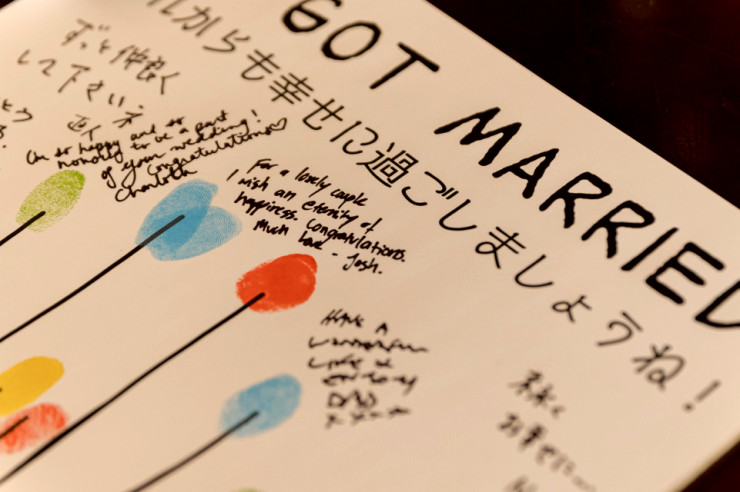 GOT MARRIED
れからも幸せに過ごしましょうね!
ずっと仲良く
して下さいネ
am so happy and so
honored to be a part
of your wedding!
Congratulations♡
Charlotte
For a lovely couple
I wish an eternity of
happiness. Congratulations.
Much love - Josh.
HAVE A
LIFE
DAD
x x x x
末永く
お幸せに